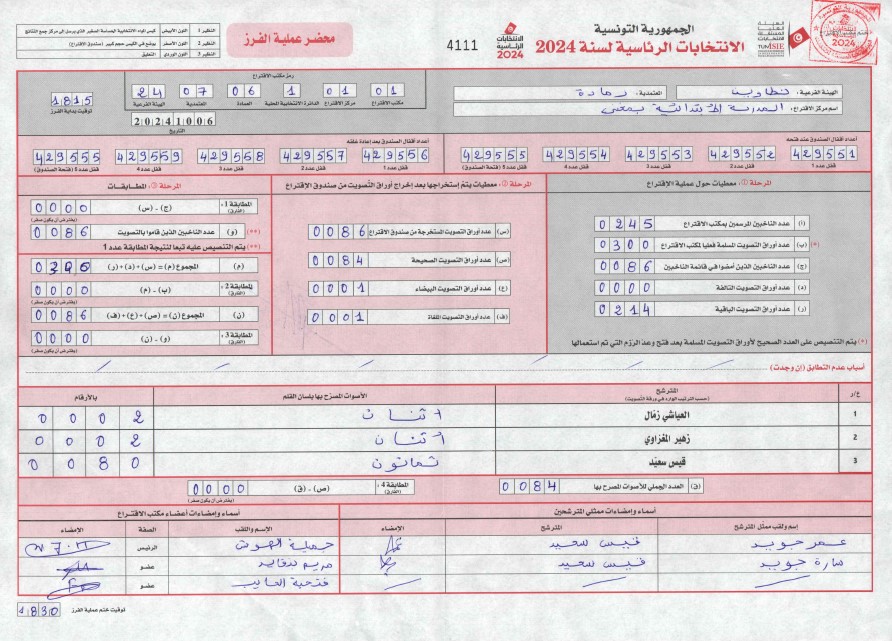 الجمهورية التونسية
الانتخابات الرئاسية لسنة 2024
الانتخابات الرئاسية 2024
4111
محضر عملية الفرز
النظير 1 اللون الأبيض
النظير 2 اللون الأصفر يوضع في الكيس حجم كبير (صندوق الاقتراع)
النظير 3 اللون الوردي التعليق
الهيئة الفرعية: تطاوين المعتمدية: رمادة
اسم مركز الاقتراع: المدرسة الابتدائية
رمز مكتب الاقتراع
01 01 1 06 07 24
مكتب الاقتراع مركز الاقتراع الدائرة الانتخابية المحلية العمادة المعتمدية الهيئة الفرعية
20241006
التاريخ
1815
توقيت بداية الفرز
أعداد أقفال الصندوق عند فتحه
429551 429552 429553 429554 429555
قفل عدد 1 قفل عدد 2 قفل عدد 3 قفل عدد 4 قفل عدد 5 (فتحة الصندوق)
أعداد أقفال الصندوق بعد إعادة غلقه
429556 429557 429558 429559 429555
قفل عدد 1 قفل عدد 2 قفل عدد 3 قفل عدد 4 قفل عدد 5 (فتحة الصندوق)
المرحلة 1: معطيات حول عملية الاقتراع
(أ) عدد الناخبين المرسمين بمكتب الاقتراع 0245
(*) (ب) عدد أوراق التصويت المسلمة فعليا لمكتب الاقتراع 0300
(ج) عدد الناخبين الذين أمضوا في قائمة الناخبين 0086
(د) عدد أوراق التصويت التالفة 0000
(ر) عدد أوراق التصويت الباقية 0214
(*) يتم التنصيص على العدد الصحيح لأوراق التصويت المسلمة بعد فتح وعد الرزم التي تم استعمالها
المرحلة 2: معطيات يتم إستخراجها بعد إخراج أوراق التصويت من صندوق الاقتراع
(س) عدد أوراق التصويت المستخرجة من صندوق الاقتراع 0086
(ص) عدد أوراق التصويت الصحيحة 0084
(ع) عدد أوراق التصويت البيضاء 0001
(ف) عدد أوراق التصويت الملغاة 0001
المرحلة 3: المطابقات
المطابقة 1: (الفارق) (ج) - (س) 0000
(يفترض أن يكون صفر)
(**) (و) عدد الناخبين الذين قاموا بالتصويت 0086
(**) يتم التنصيص عليه تبعا لنتيجة المطابقة عدد 1
(م) المجموع (م) = (س) + (د) + (ر)
المطابقة 2: (الفارق) (ب) - (م) 0000
(يفترض أن يكون صفر)
(ن) المجموع (ن) = (ص) + (ع) + (ف) 0086
المطابقة 3: (الفارق) (و) - (ن) 0000
(يفترض أن يكون صفر)
أسباب عدم التطابق (إن وجدت):
ع/ر المترشح الأصوات المصرح بها بلسان القلم بالأرقام
(حسب الترتيب الوارد في ورقة التصويت)
1 العياشي زمّال اثنان 0002
2 زهير المغزاوي اثنان 0002
3 قيس سعيّد ثمانون 0080
(ق) العدد الجملي للأصوات المصرح بها 0084
المطابقة 4: (الفارق) (ص) - (ق) 0000
(يفترض أن يكون صفر)
أسماء وإمضاءات ممثلي المترشحين
إسم ولقب ممثل المترشح المترشح الإمضاء
عمر جويد قيس سعيد
سارة جويد قيس سعيد
أسماء وإمضاءات أعضاء مكتب الاقتراع
الإسم واللقب الصفة الإمضاء
الرئيس
مريم عضو
فتحية عضو
توقيت ختم عملية الفرز 1830